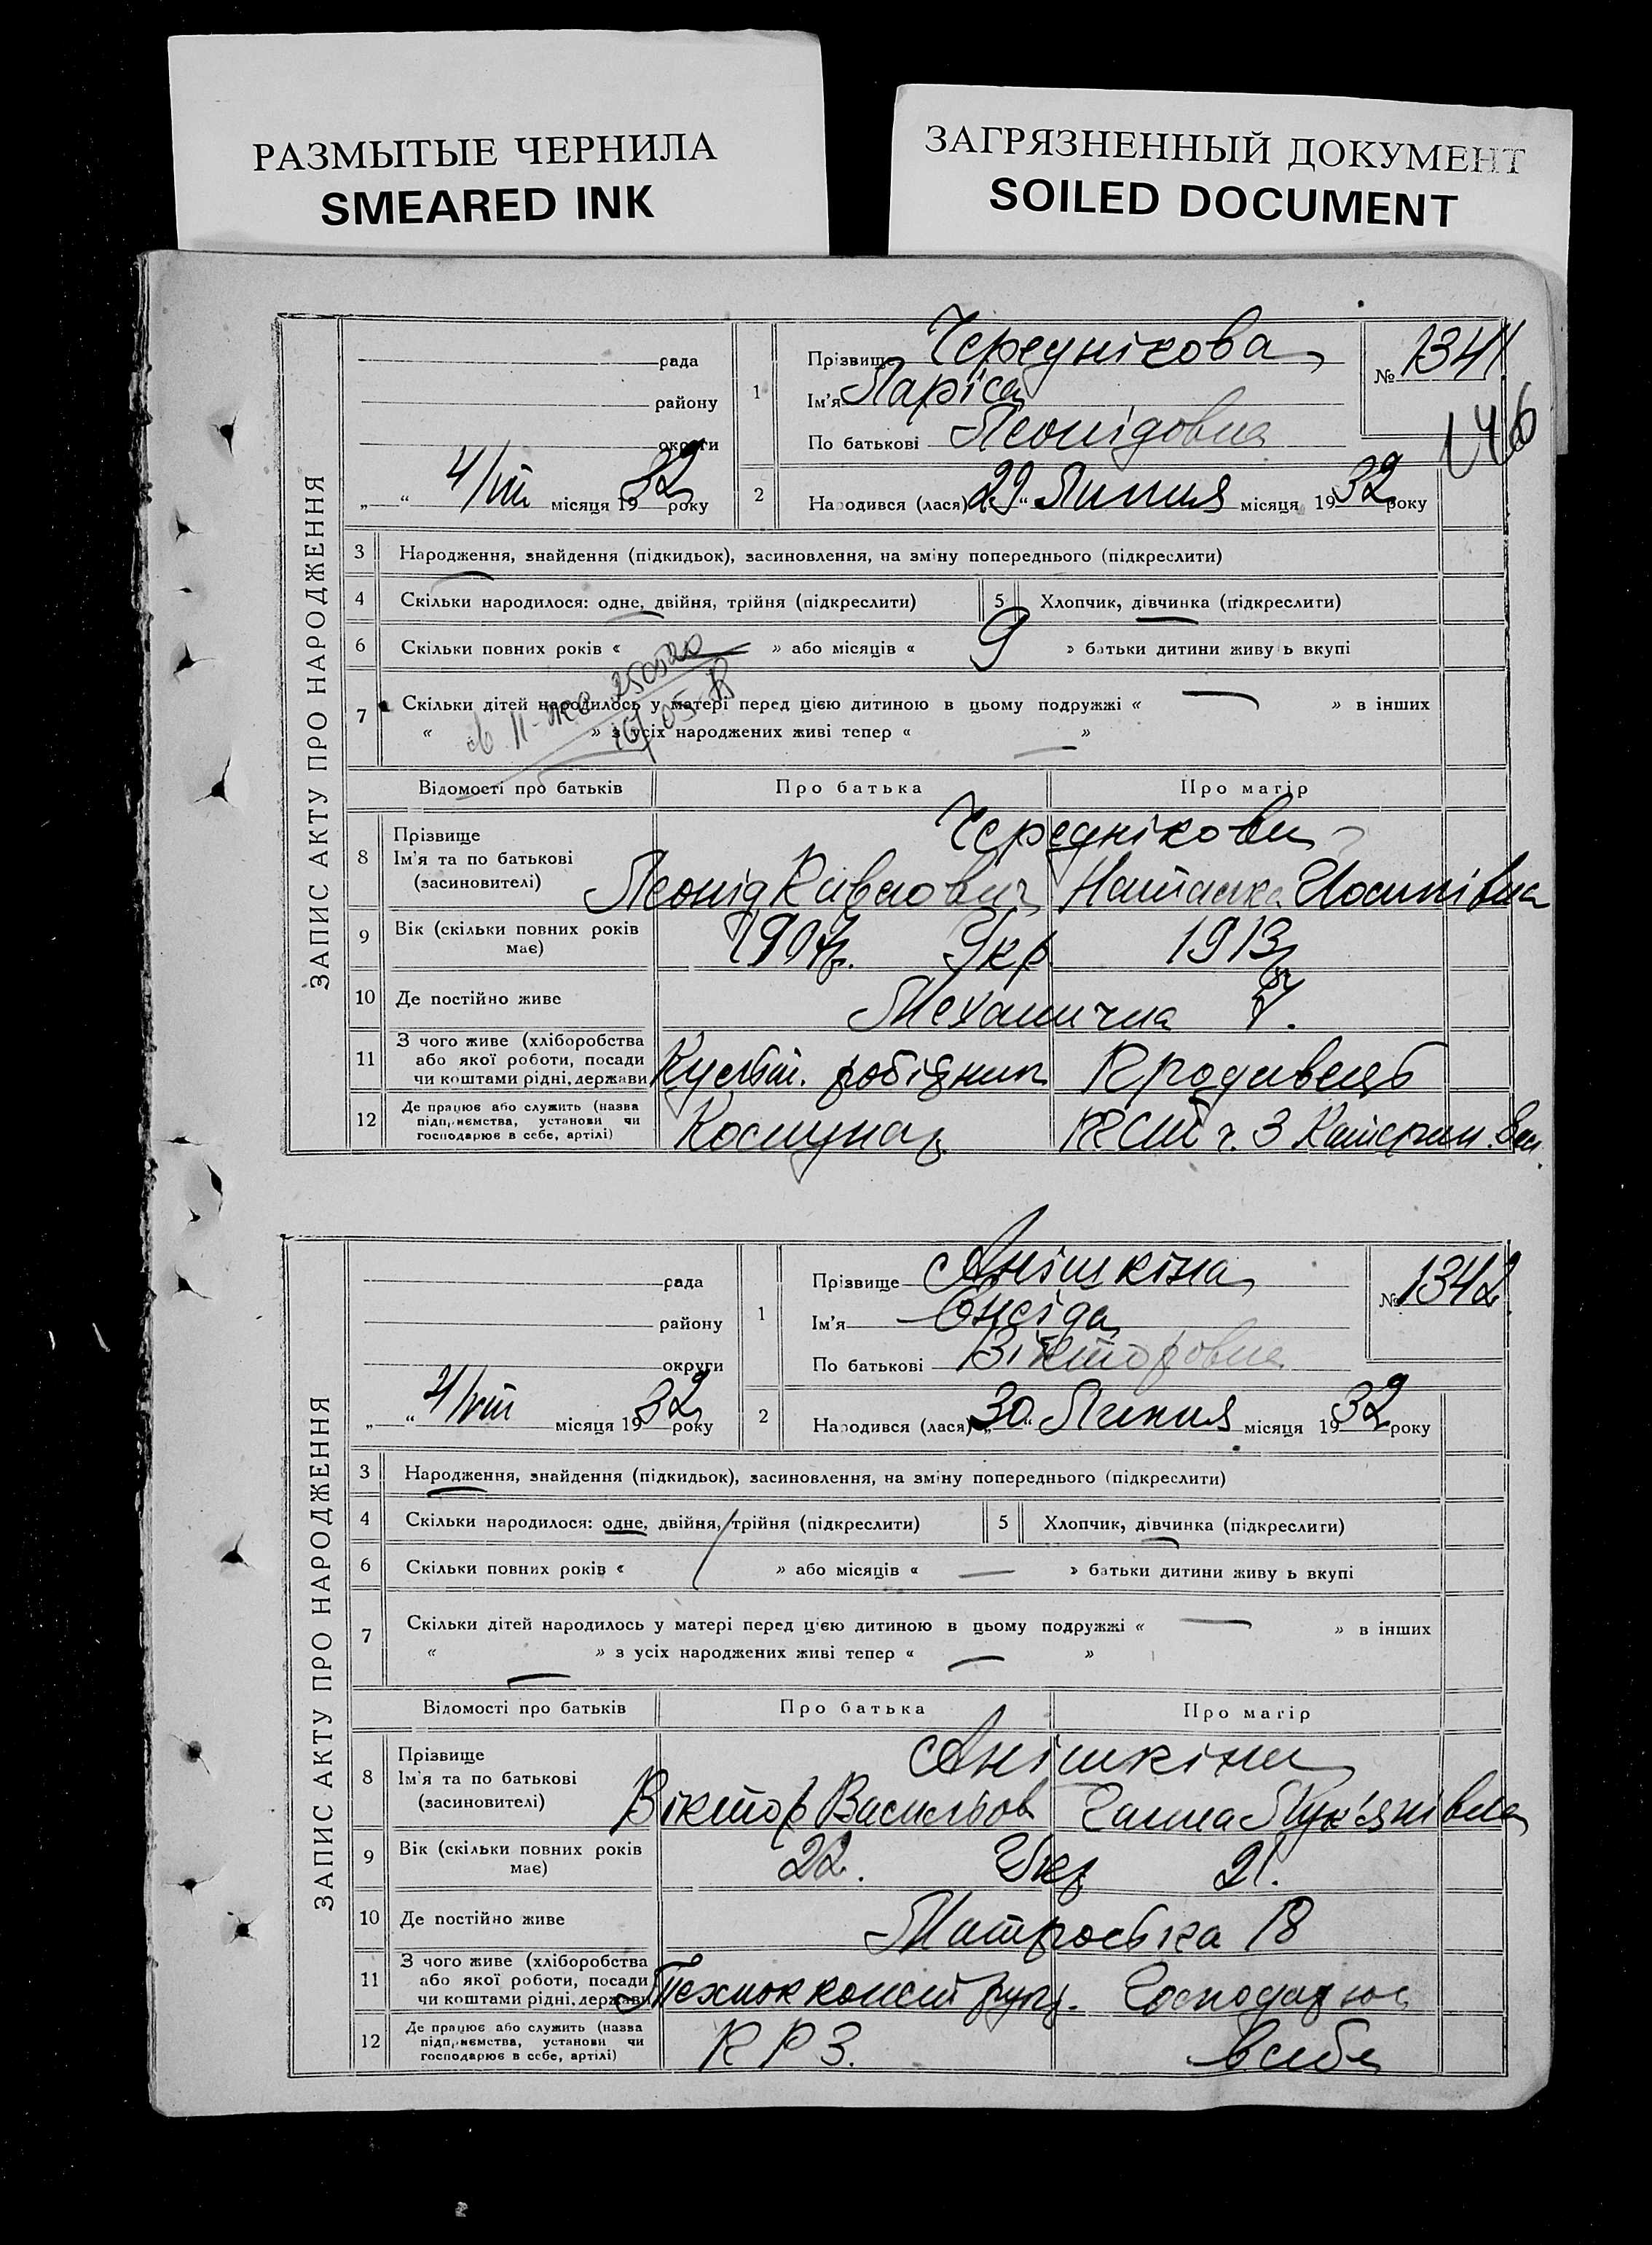 РАЗМЫТЫЕ ЧЕРНИЛА
SMEARED INK
ЗАГРЯЗНЕННЫЙ ДОКУМЕНТ
SOILED DOCUMENT
ЗАПИС АКТУ ПРО НАРОДЖЕННЯ
рада
району
округи
„ “ 4/VIII місяця 1932 року
1
Прізвище Череднікова
Ім'я Ларіса
По батькові Леонідовна
№ 1341
146
2
Народився (лася) „29“ Липня місяця 1932 року
3 Народження, знайдення (підкидьок), засиновлення, на зміну попереднього (підкреслити)
4 Скільки народилося: одне, двійня, трійня (підкреслити)
5 Хлопчик, дівчинка (підкреслити)
6 Скільки повних років « » або місяців « 9 » батьки дитини живуть вкупі
7 Скільки дітей народилось у матері перед цією дитиною в цьому подружжі « — » в інших
« » з усіх народжених живі тепер « — »
Відомості про батьків Про батька Про матір
8 Прізвище
Ім'я та по батькові
(засиновителі)
Череднікови
Леонід Наталка
9 Вік (скільки повних років має)
1907р. Укр 1913
10 Де постійно живе
Механична
11 З чого живе (хліборобства або якої роботи, посади чи коштами рідні, держави
робідник Кродавець
12 Де працює або служить (назва підприємства, установи чи господарює в себе, артілі)
ч. 3
ЗАПИС АКТУ ПРО НАРОДЖЕННЯ
рада
району
округи
„ “ 4/VIII місяця 1932 року
1
Прізвище Анішкіна
Ім'я Єнеіда
По батькові Вікторовна
№ 1342
2
Народився (лася) „30“ Липня місяця 1932 року
3 Народження, знайдення (підкидьок), засиновлення, на зміну попереднього (підкреслити)
4 Скільки народилося: одне, двійня, трійня (підкреслити)
5 Хлопчик, дівчинка (підкреслити)
6 Скільки повних років « / » або місяців « — » батьки дитини живуть вкупі
7 Скільки дітей народилось у матері перед цією дитиною в цьому подружжі « — » в інших
« — » з усіх народжених живі тепер « — »
Відомості про батьків Про батька Про матір
8 Прізвище
Ім'я та по батькові
(засиновителі)
Анішкіни
Віктор Васильов Ганна Лук'янівна
9 Вік (скільки повних років має)
22. Укр 21.
10 Де постійно живе
Матроська 18
11 З чого живе (хліборобства або якої роботи, посади чи коштами рідні, держави
Господарює
12 Де працює або служить (назва підприємства, установи чи господарює в себе, артілі)
К Р З. в себе